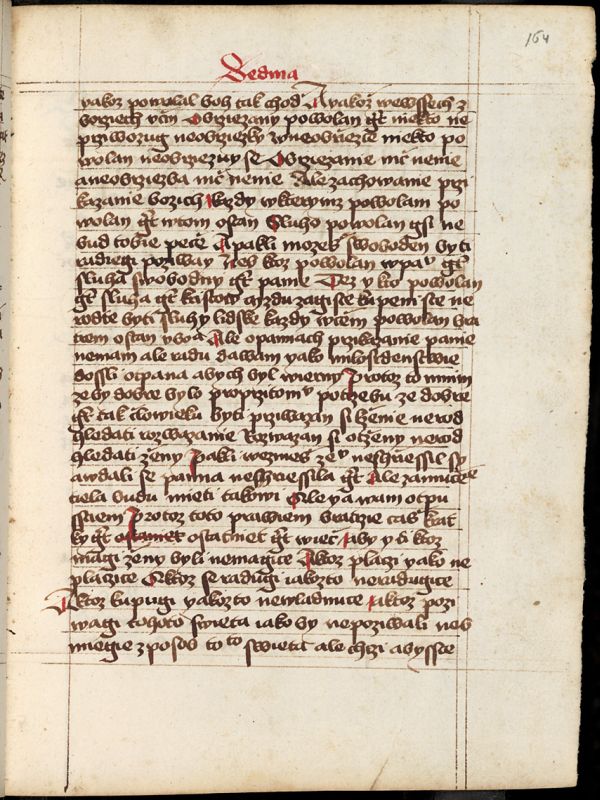 164
Sedma
yakoz powolal boh tak chod A yakoz wewssech z
borziech vcim Obrziezany powolan gt niekto ne
prziwozug neobrziezky Wneobrziezce niekto po
wolan neobrziezuy se Obrziezanie nic nenie
aneobrziezka nic nenie Ale zachowanie przi
kazanie bozich Kazdy wkterymz powolani po
wolan gt wtom ostan Sluho powolan gsi ne
bud tobie pece A pakli mozes swoboden byti
radiegi poziway Neb ktoz powolan wpa gt
sluha swobodny gt panie Tez y kto powolan
gt sluha gt kristow mzdu zagiste kupeni ste ne
rodte byti sluhy lidske kazdy wtem powolan bra
trem ostan vboha Ale opannach przikazanie panie
nemam ale radu dawam yako milosrdenstwie
dossli otpana abych byl wierny Protoz to mnim
ze by dobre bylo proprzitom potrzebu ze dobre
gt tak clowieku byti Prziwazan si kzenie nerod
hledati rozwazanie Rozwazan si otzeny nerod
hledati zeny Pakli wezmes ze neshrziessil sy
awdali se panna neshrziessila gt Ale zamucenie
tiela budu mieti takowi Ale ya wam otpu
ssciem Protoz toto prawiem bratrzie cas krat
ky gt ostatnet ostatniet gt wiec Aby y ti ktoz
magi zeny byli nemagice A ktoz placzi yako ne
placzice A ktoz se radugi iakozto neradugice
A ktoz kupugi yakozto newladnuce A ktoz pozi
wagi tohoto swieta iako by nepoziwali neb
miegie zposob to to swieta ale chczi abysste